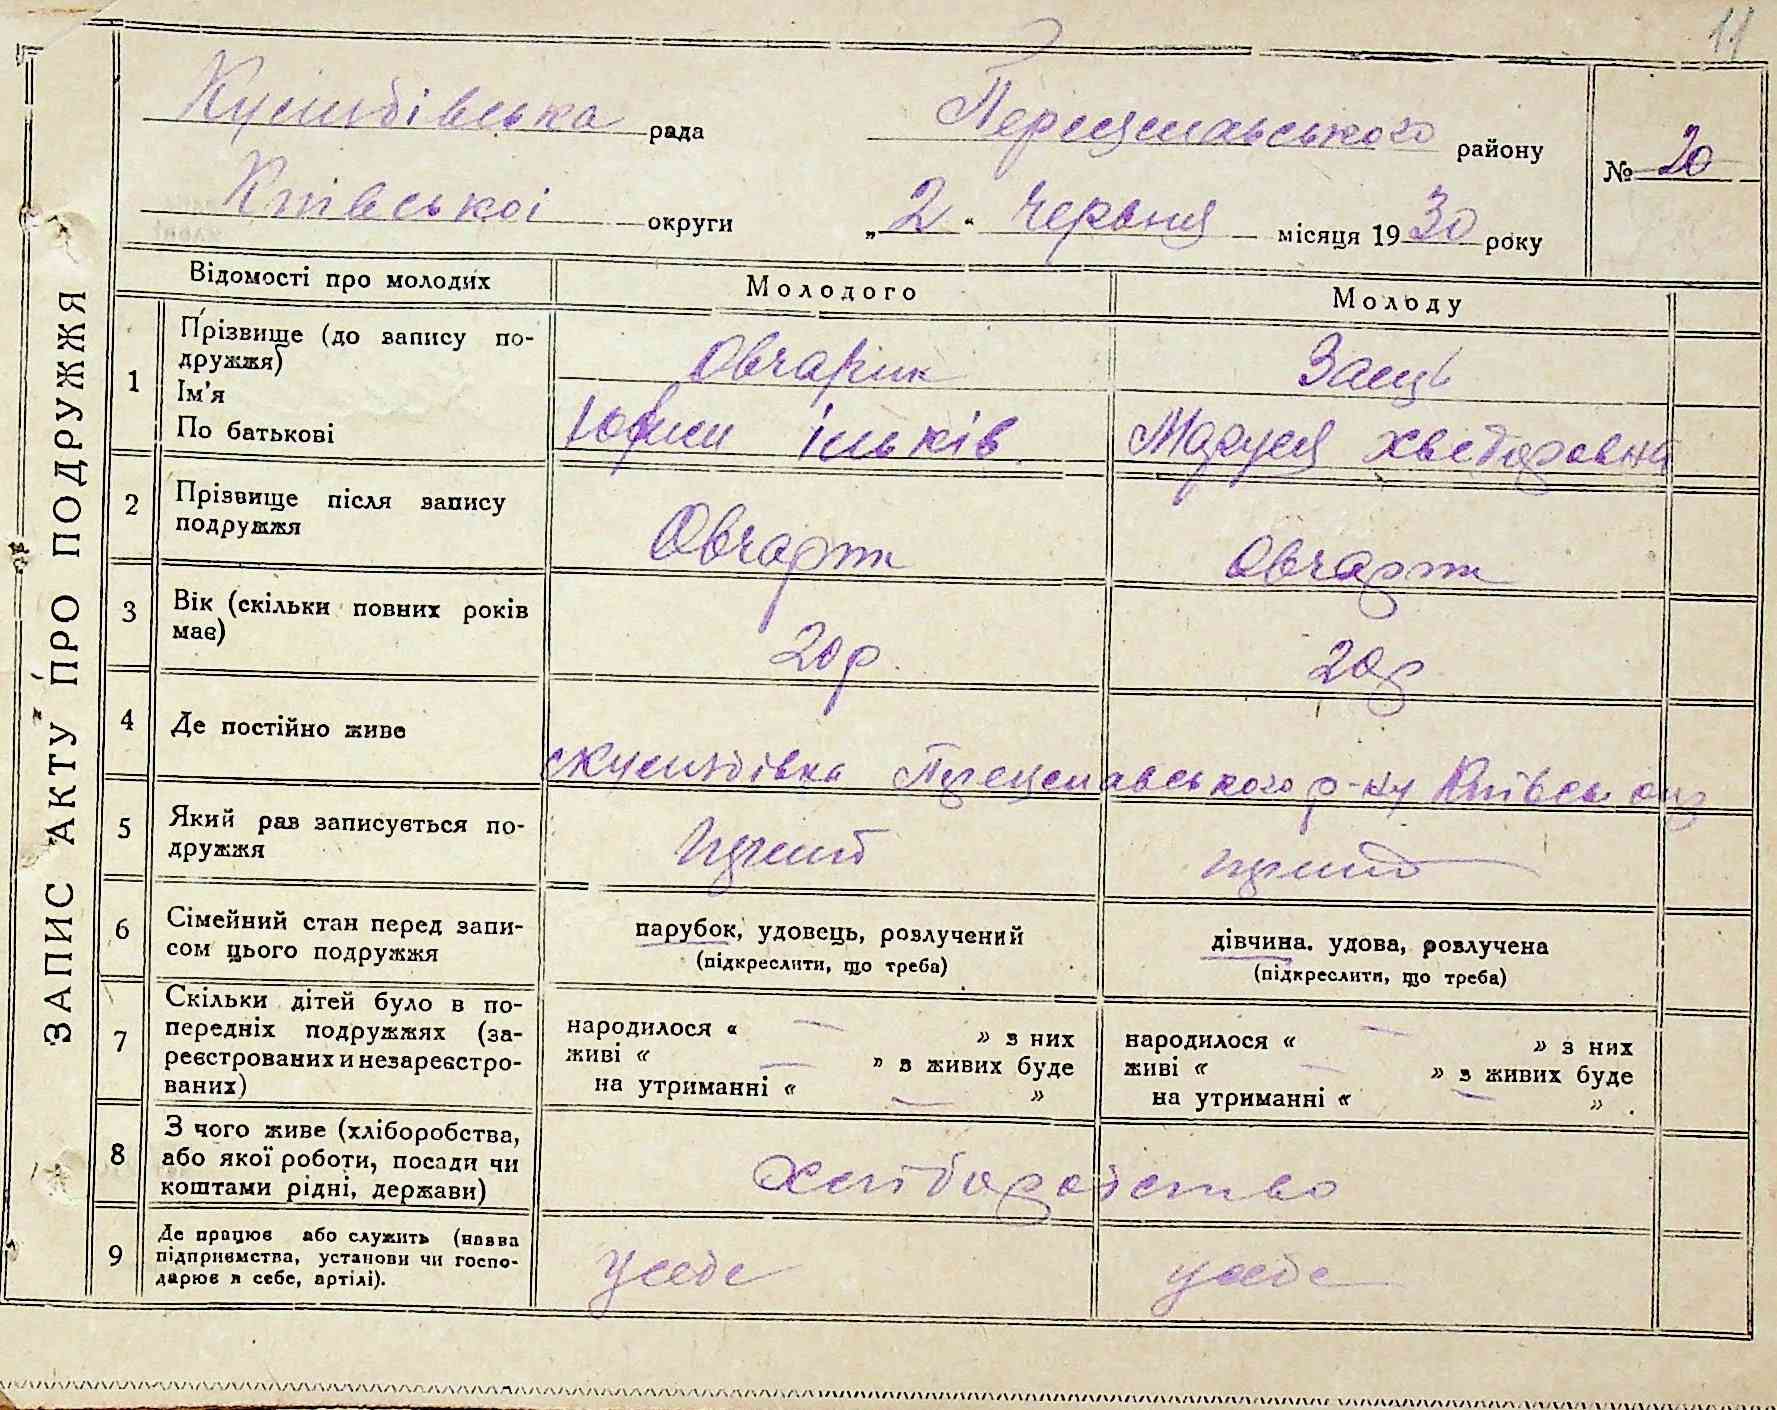 11
рада Переяславського району
№ 20
Київської округи „2“ Червня місяця 1930 року
ЗАПИС АКТУ ПРО ПОДРУЖЖЯ
Відомості про молодих
Молодого
Молоду
1
Прізвище (до запису по-
дружжя)
Ім'я
По батькові
Овчарик
Юхим ільків
Заєць
Маруся хведоровна
2
Прізвище після запису
подружжя
Овчарик
Овчарик
3
Вік (скільки повних років
має)
20р.
20р
4
Де постійно живе
р-ну Київськ окр
5
Який раз записується по-
дружжя
перший
перший
6
Сімейний стан перед запи-
сом цього подружжя
парубок, удовець, розлучений
(підкреслити, що треба)
дівчина. удова, розлучена
(підкреслити, що треба)
7
Скільки дітей було в по-
передніх подружжях (за-
реєстрованих и незареєстро-
ваних)
народилося « — » з них
живі « — » з живих буде
на утриманні « — »
народилося « — » з них
живі « — » з живих буде
на утриманні « — »
8
З чого живе (хліборобства,
або якої роботи, посади чи
коштами рідні, держави)
хліборобство
9
Де працює або служить (назва
підприємства, установи чи госпо-
дарює в себе, артілі).
усебе
усебе